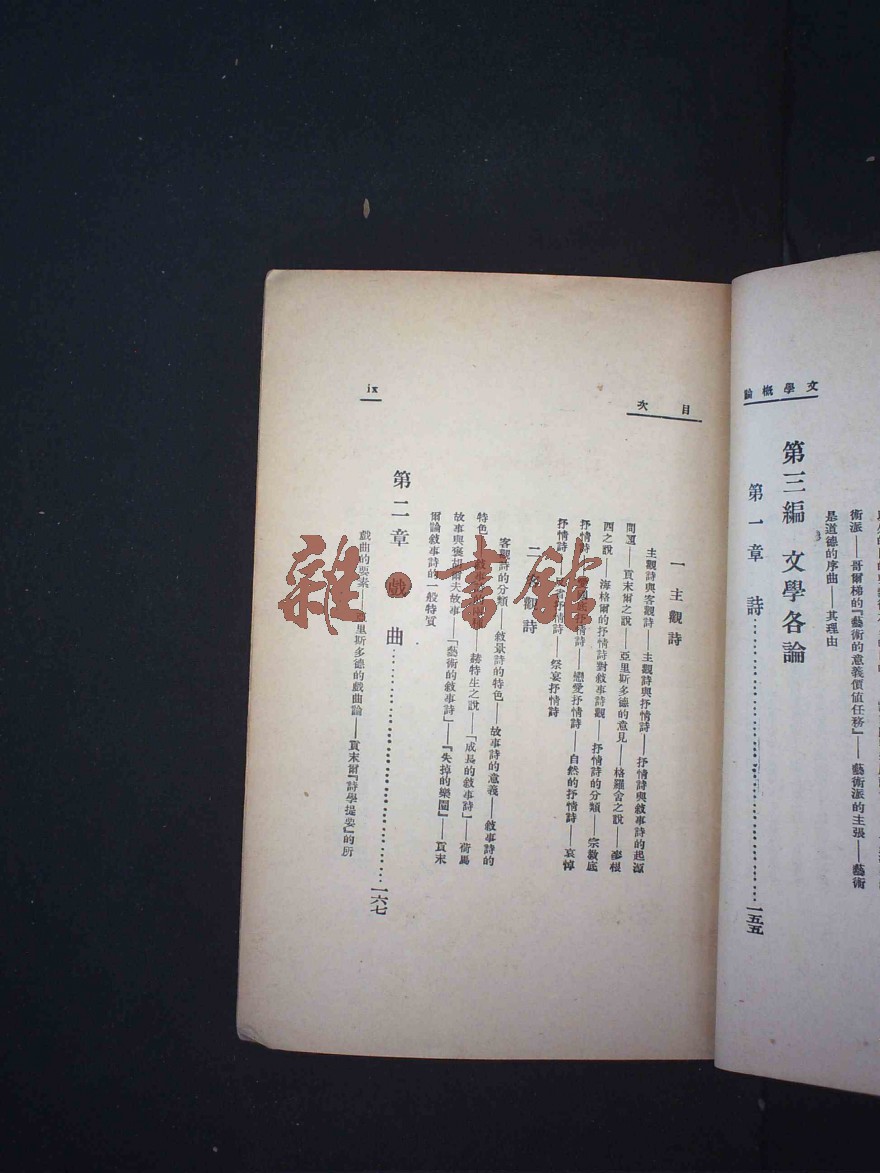 文學概論
術派——哥爾梯的『藝術的意義價值任務』——藝術派的主張——藝術
是道德的序曲——其理由
第三編 文學各論
第一章 詩……一五五
目次
一 主觀詩
主觀詩與客觀詩——主觀詩與抒情詩——抒情詩與敘事詩的起源
問題——貢末爾之說——亞里斯多德的意見——格羅舍之說——廖根
四之說——海格爾的抒情詩對敘事詩觀——抒情詩的分類——宗教底
抒情詩——抒情詩——戀愛抒情詩——自然的抒情詩——哀悼
抒情詩——抒情詩——祭宴抒情詩
二 客觀詩
客觀詩的分類——敘景詩的特色——故事詩的意義——敘事詩的
特色——敘事詩——赫特生之說——「成長的敘事詩」——荷馬
故事與褒胡爾夫故事——「藝術的敘事詩」——『失掉的樂園』——貢末
爾論敘事詩的一般特質
第二章 戲曲……一六七
戲曲的要素——亞里斯多德的戲曲論——貢末爾『詩學提要』的所
ix
雜·書館